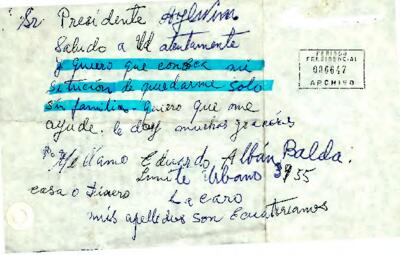 Sr. Presidente Aylwim
Saludo a Ud atentamente
y quiero que conosca mi
situcion de quedarme solo
sin familia. quiero que me
ayude. le doy muchas gracias
Me llamo Eduardo Albán Balda.
Limite Urbano 3955
casa o
La caro
mis apelledos son Ecuatorianos
PERIODO
PRESIDENCIAL
006647
ARCHIVO